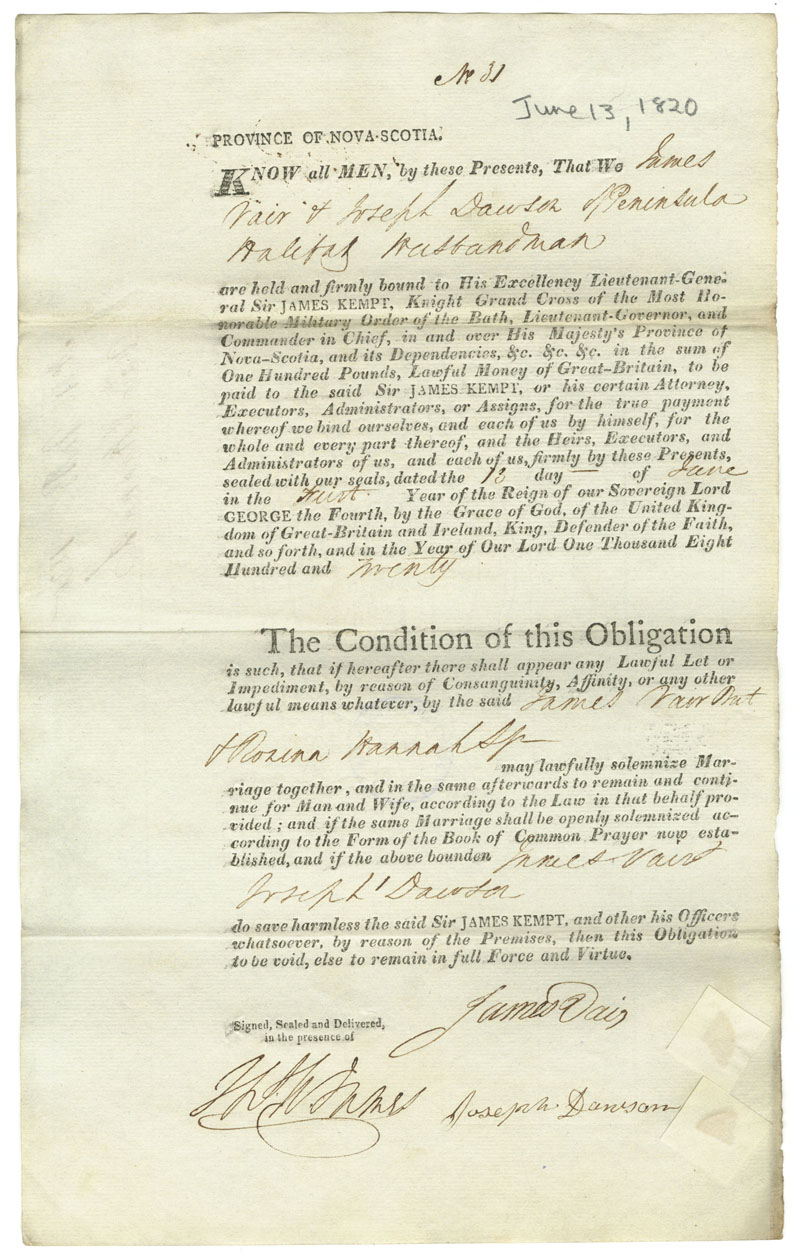 No 31
June 13, 1820
PROVINCE OF NOVA-SCOTIA.
KNOW all MEN, by these Presents, That We James
Vair & Joseph Dawson of Peninsula
Halifax Husbandman
are held and firmly bound to His Excellency Lieutenant-Gene-
ral Sir JAMES KEMPT, Knight Grand Cross of the Most Ho-
norable Military Order of the Bath, Lieutenant-Governor, and
Commander in Chief, in and over His Majesty's Province of
Nova-Scotia, and its Dependencies, &c. &c. &c. in the sum of
One Hundred Pounds, Lawful Money of Great-Britain, to be
paid to the said Sir JAMES KEMPT, or his certain Attorney,
Executors, Administrators, or Assigns, for the true payment
whereof we bind ourselves, and each of us by himself, for the
whole and every part thereof, and the Heirs, Executors, and
Administrators of us, and each of us, firmly by these Presents,
sealed with our seals, dated the 13 day of June
in the First Year of the Reign of our Sovereign Lord
GEORGE the Fourth, by the Grace of God, of the United King-
dom of Great-Britain and Ireland, King, Defender of the Faith,
and so forth, and in the Year of Our Lord One Thousand Eight
Hundred and Twenty
The Condition of this Obligation
is such, that if hereafter there shall appear any Lawful Let or
Impediment, by reason of Consanguinity, Affinity, or any other
lawful means whatever, by the said James Vair Bat
& Rosina Hannah Sp
may lawfully solemnize Mar-
riage together, and in the same afterwards to remain and conti-
nue for Man and Wife, according to the Law in that behalf pro-
vided; and if the same Marriage shall be openly solemnized ac-
cording to the Form of the Book of Common Prayer now esta-
blished, and if the above bounden James Vair &
Joseph Dawson
do save harmless the said Sir JAMES KEMPT, and other his Officers
whatsoever, by reason of the Premises, then this Obligation
to be void, else to remain in full Force and Virtue.
James Vair
Signed, Sealed and Delivered,
in the presence of
James
Joseph Dawson